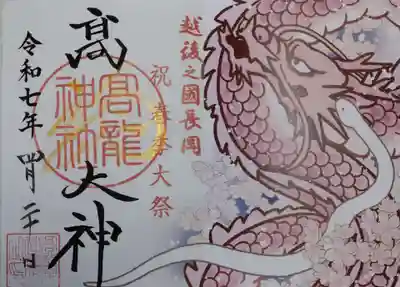 越後之國長岡
祝 春季大祭
髙 大神
高龍
神社
令和七年 四月二十日